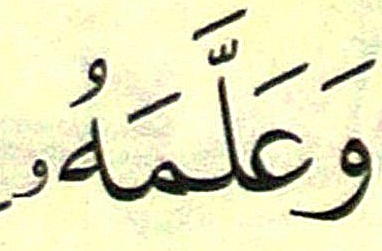 وَعَلَّمَهُۥ